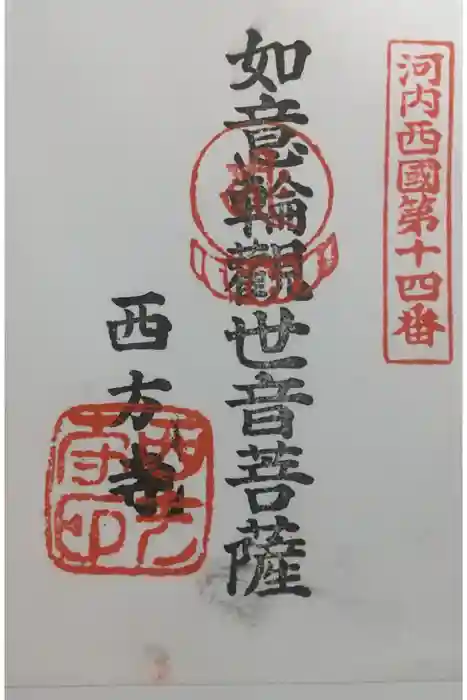 河内西國第十四番
如意輪觀世音菩薩
西方寺
西方寺印